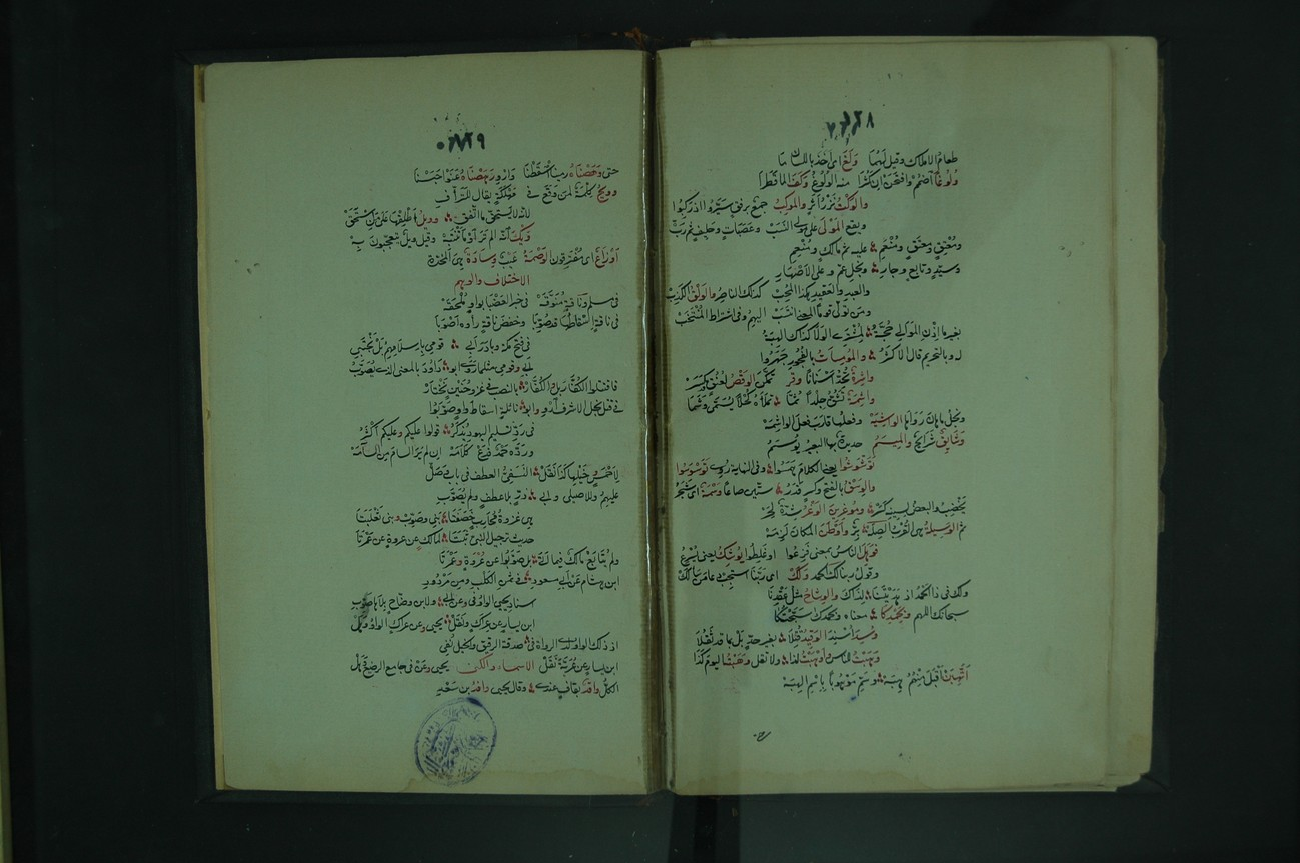 طعام الاملاك وقيل لهما ولغ اي اخذ باللسان ما
ولوغا اضمم وافتحن ان كثرا منه الولوغ وكف الما قطرا
والوكت نزر اثر والموكب جمع برفق سيروا اذ ركبوا
ويقع المولى على ولي النسب وعصبات وحليف ثم رب
ومعتق ومعتق ومنعم عليه ثم مالك ومنعم
وسيد وتابع وجار ونجل عم وعلى الاصهار
والعبد والعقيد هكذا المحب كذلك الناصر والولق الكذب
ومن تولى قوما اليهم وفي اشتراط
بغير ما اذن الموالي حجة لمشتري الولا كذاك الهبة
له وبالتحريم قال الاكثر والمومسات بالفجور جهروا
واشرة اسنانا وفر الوقص لعنق وكسر
واشمة تشق جلدا ثما تملاه كحلا يسمى وشما
ونجل ماهان رواها الواشية وفعلها قارب فعل الواشمة
وشايق شرايح والميسم حديدة بها البعير يوسم
توشوشوا بعض الكلام همسوا وفي النهاية روي توسوسوا
والوسق بالفتح وكسر قدر ستين صاعا وسمة اي شجر
يخضب والبعض لسينه كسر وموغرين الوغر شدة لحر
ثم الوسيلة هي القرب الصلة بر واوطن المكان لزمه
فوهل الناس بمعنى فزعوا او غلطوا يوشك يعني يسرع
وقول ربنا لك الحمد ولك اي ربنا استجب دعا من سالك
ولك في ذا الحمد اذ هديتنا لذاك والوشاح مثل عقدنا
سبحانك اللهم وبحمدكا معناه وبحمدك سبحتكا
وسيدا سيدا الوقيذ قتلا بغير حد بل بما قد ثقلا
وهبت للناس وهبت لذا ولا تقل وهبت اليوم كذا
اتهبن اقبل منهم هبة وسم موهوبا باسم الهبة
حتى وهصناه رمينا اسقطنا وارو رهصناه عنوا حبسنا
وويح كلمة لمن وقع في مهلكة يقال للترأف
لانه لا يستحق ما اتفق وويل اطلقها على من استحق
ويك انه الم تر اوما تنبه وقيل ويل يتعجبون به
اوزاع اي مفترقون الوصمة عيب وسادة هي المخدة
الاختلاف والوهم
في مسلم وناقة منوقة في خبر العضبا بواو ملحقة
في ناقة اسقاطها قد صوبا وخفض ناقة رأوه اصوبا
في فتح مكة وبادر ابي قومي باسلامهم بل نجتبي
ابي وقومي مثلما رواه ابو داود بالمعنى الذي يصوب
فاقتتلوا الكفار بل والكفار بالنصب في غزو حنين نختار
في قتل نجل الاشرف وابو نائلة اسقاط واو صوبوا
في رد تسليم اليهود يذكر قولوا عليكم وعليكم اكثر
ورده حمد في كلامه ان لم ير السام من السآمة
لاحمس وخيلها كذا نقل النسفي العطف في باب فصل
عليهم وللاصيلي ولابي ذر بلا عطف ولم يصوب
من غزوة محارب خصفتا بني وصوب وبني ثعلبتا
حديث ترجيل النبي ثبتا لمالك عن عروة عن عمرتا
ولم يتابع مالك فيما اتى بل صوبوا عن عروة وعمرتا
ابن هشام عن ابي مسعود في ثمن الكلب ومن مردود
اسناد يحيى الواو في وعن ابي ولابن وضاح بلا ها صوب
ابن يسار عن عراك ونقل يحيى وعن عراك الواو وهل
اذ ذلك الواو لدى الرواة في صدقة الرقيق والخيل نفي
ابن يسار عن نقل الاسماء والكنى يحيى وعن في جامع الرضيع هل
الكل واقد بقاف عنده وقال يحيى وافد بن سعد